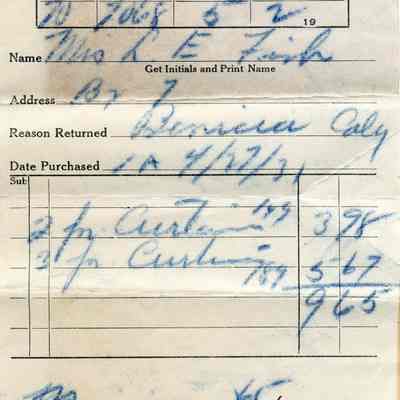 70 7068 5 2 19
Name Mrs L E Fish
Get Initials and Print Name
Address Bx 7
Reason Returned Benicia Caly
Date Purchased 1A 4/27/31
Sub
2 pr Curtains 199 3 98
3 pr Curtains 189 5 67
9 65